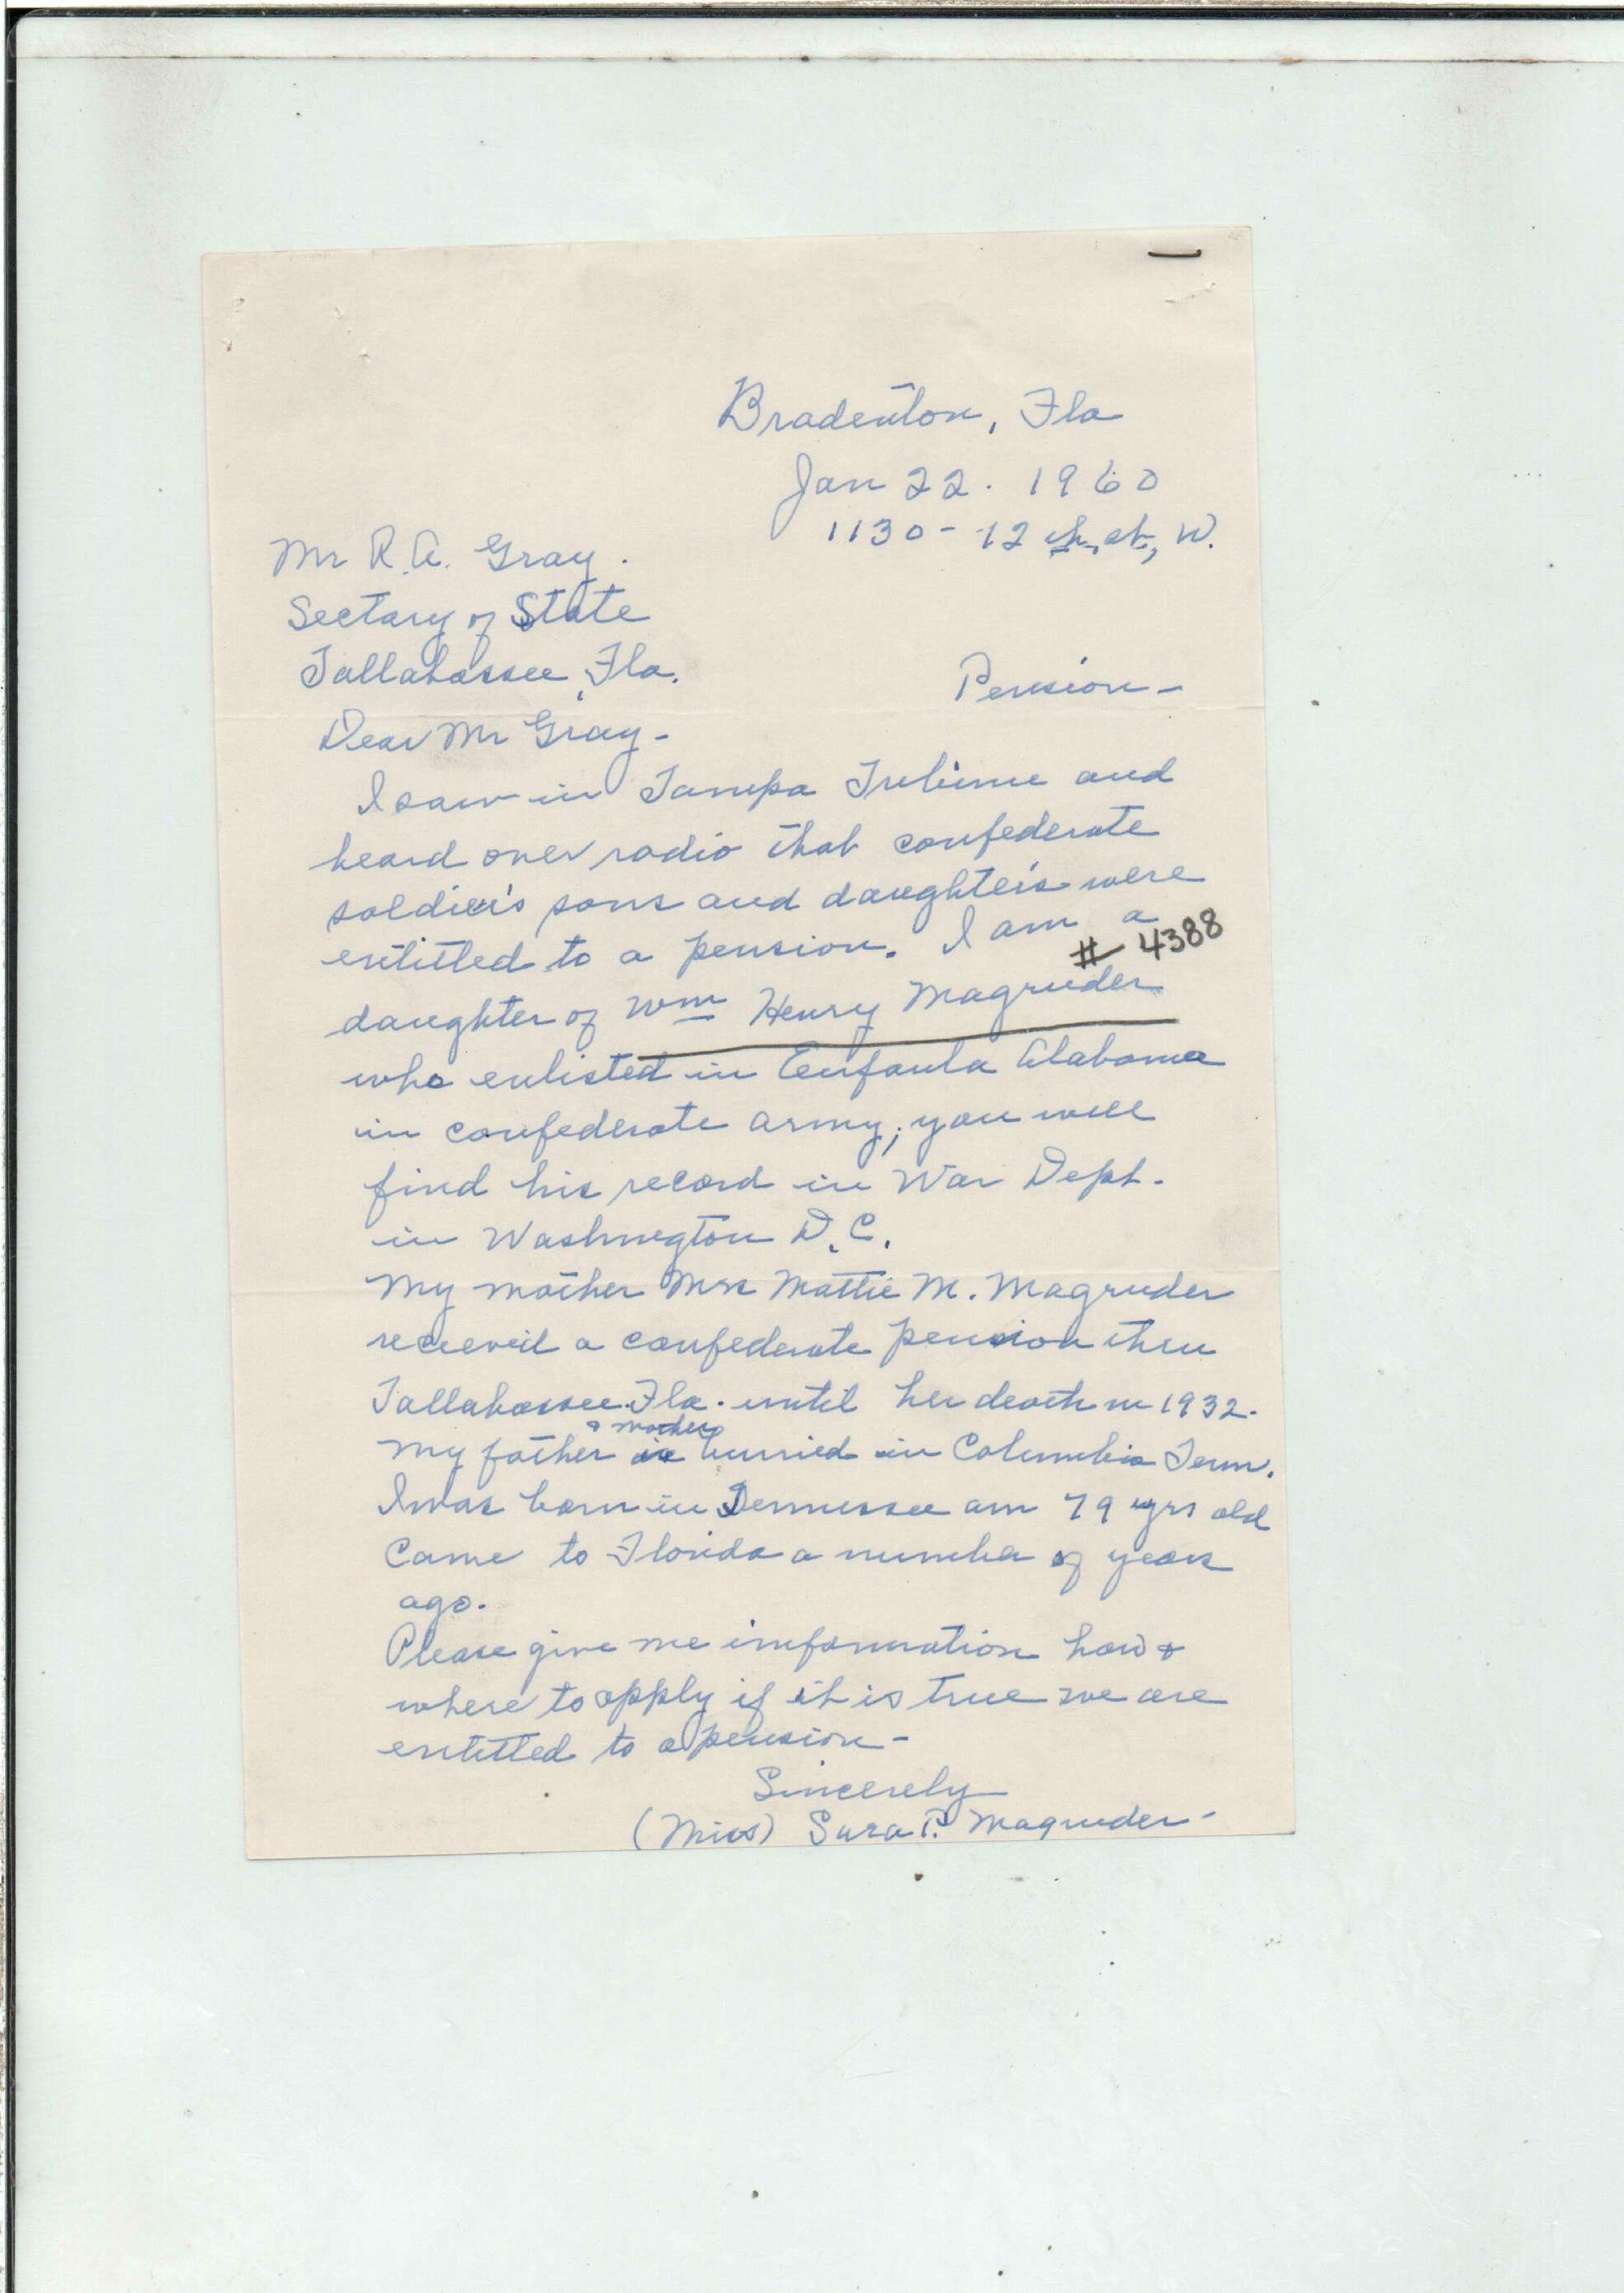 Bradenton, Fla
Jan 22. 1960
1130 - 12 th, st, W.
Mr R.A. Gray.
Sectary of State
Tallahassee, Fla.
Pension -
Dear Mr Gray -
I saw in Tampa Tribune and
heard over radio that confederate
soldier's sons and daughters were
entitled to a pension. I am a
# 4388
daughter of Wm Henry Magruder
who enlisted in Eufaula Alabama
in confederate army; you will
find his record in War Dept.
in Washington D.C.
My mother Mrs Mattie M. Magruder
received a confederate pension thru
Tallahassee Fla. until her death in 1932.
& mother
My father is burried in Columbia Tenn.
I was born in Tennessee am 79 yrs old
Came to Florida a number of years
ago.
Please give me imformation how &
where to apply if it is true we are
entitled to a pension -
Sincerely
(Miss) Sara P. Magruder -